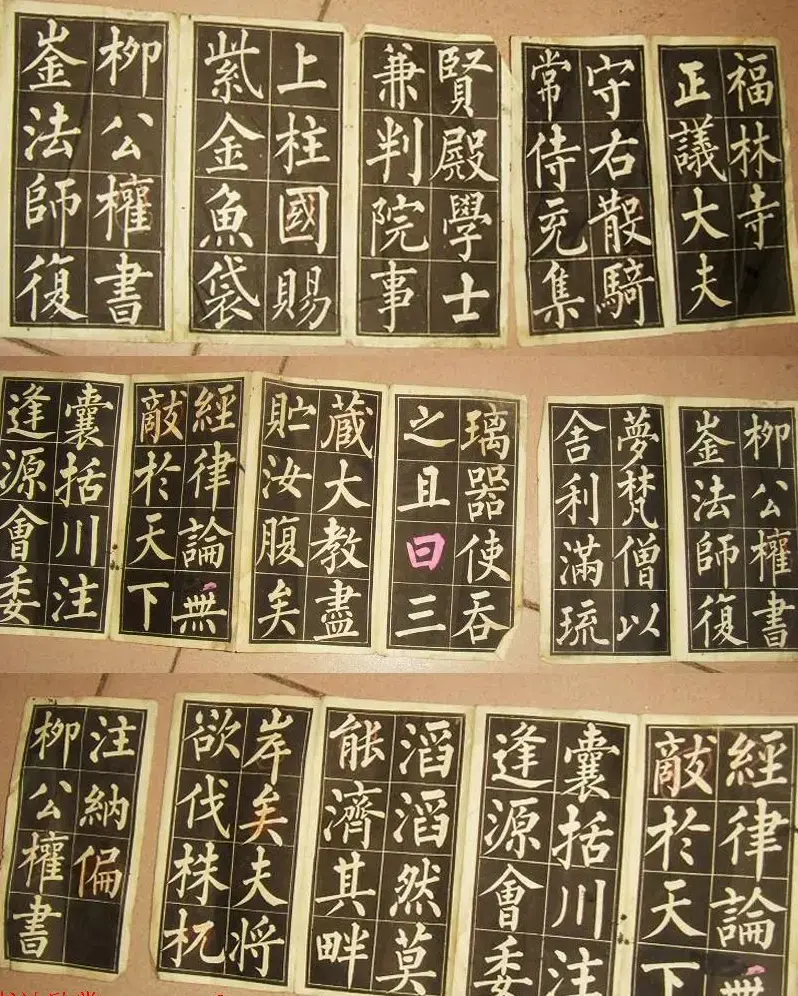 福林寺
正議大夫
守右散騎
常侍充集
賢殿學士
兼判院事
上柱國賜
紫金魚袋
柳公權書
崟法師復
柳公權書
崟法師復
夢梵僧以
舍利滿琉
璃器使吞
之且曰三
藏大教盡
貯汝腹矣
經律論無
敵於天下
囊括川注
逢源會委
經律論無
敵於天下
囊括川注
逢源會委
滔滔然莫
能濟其畔
岸矣夫將
欲伐株杌
注納偏
柳公權書